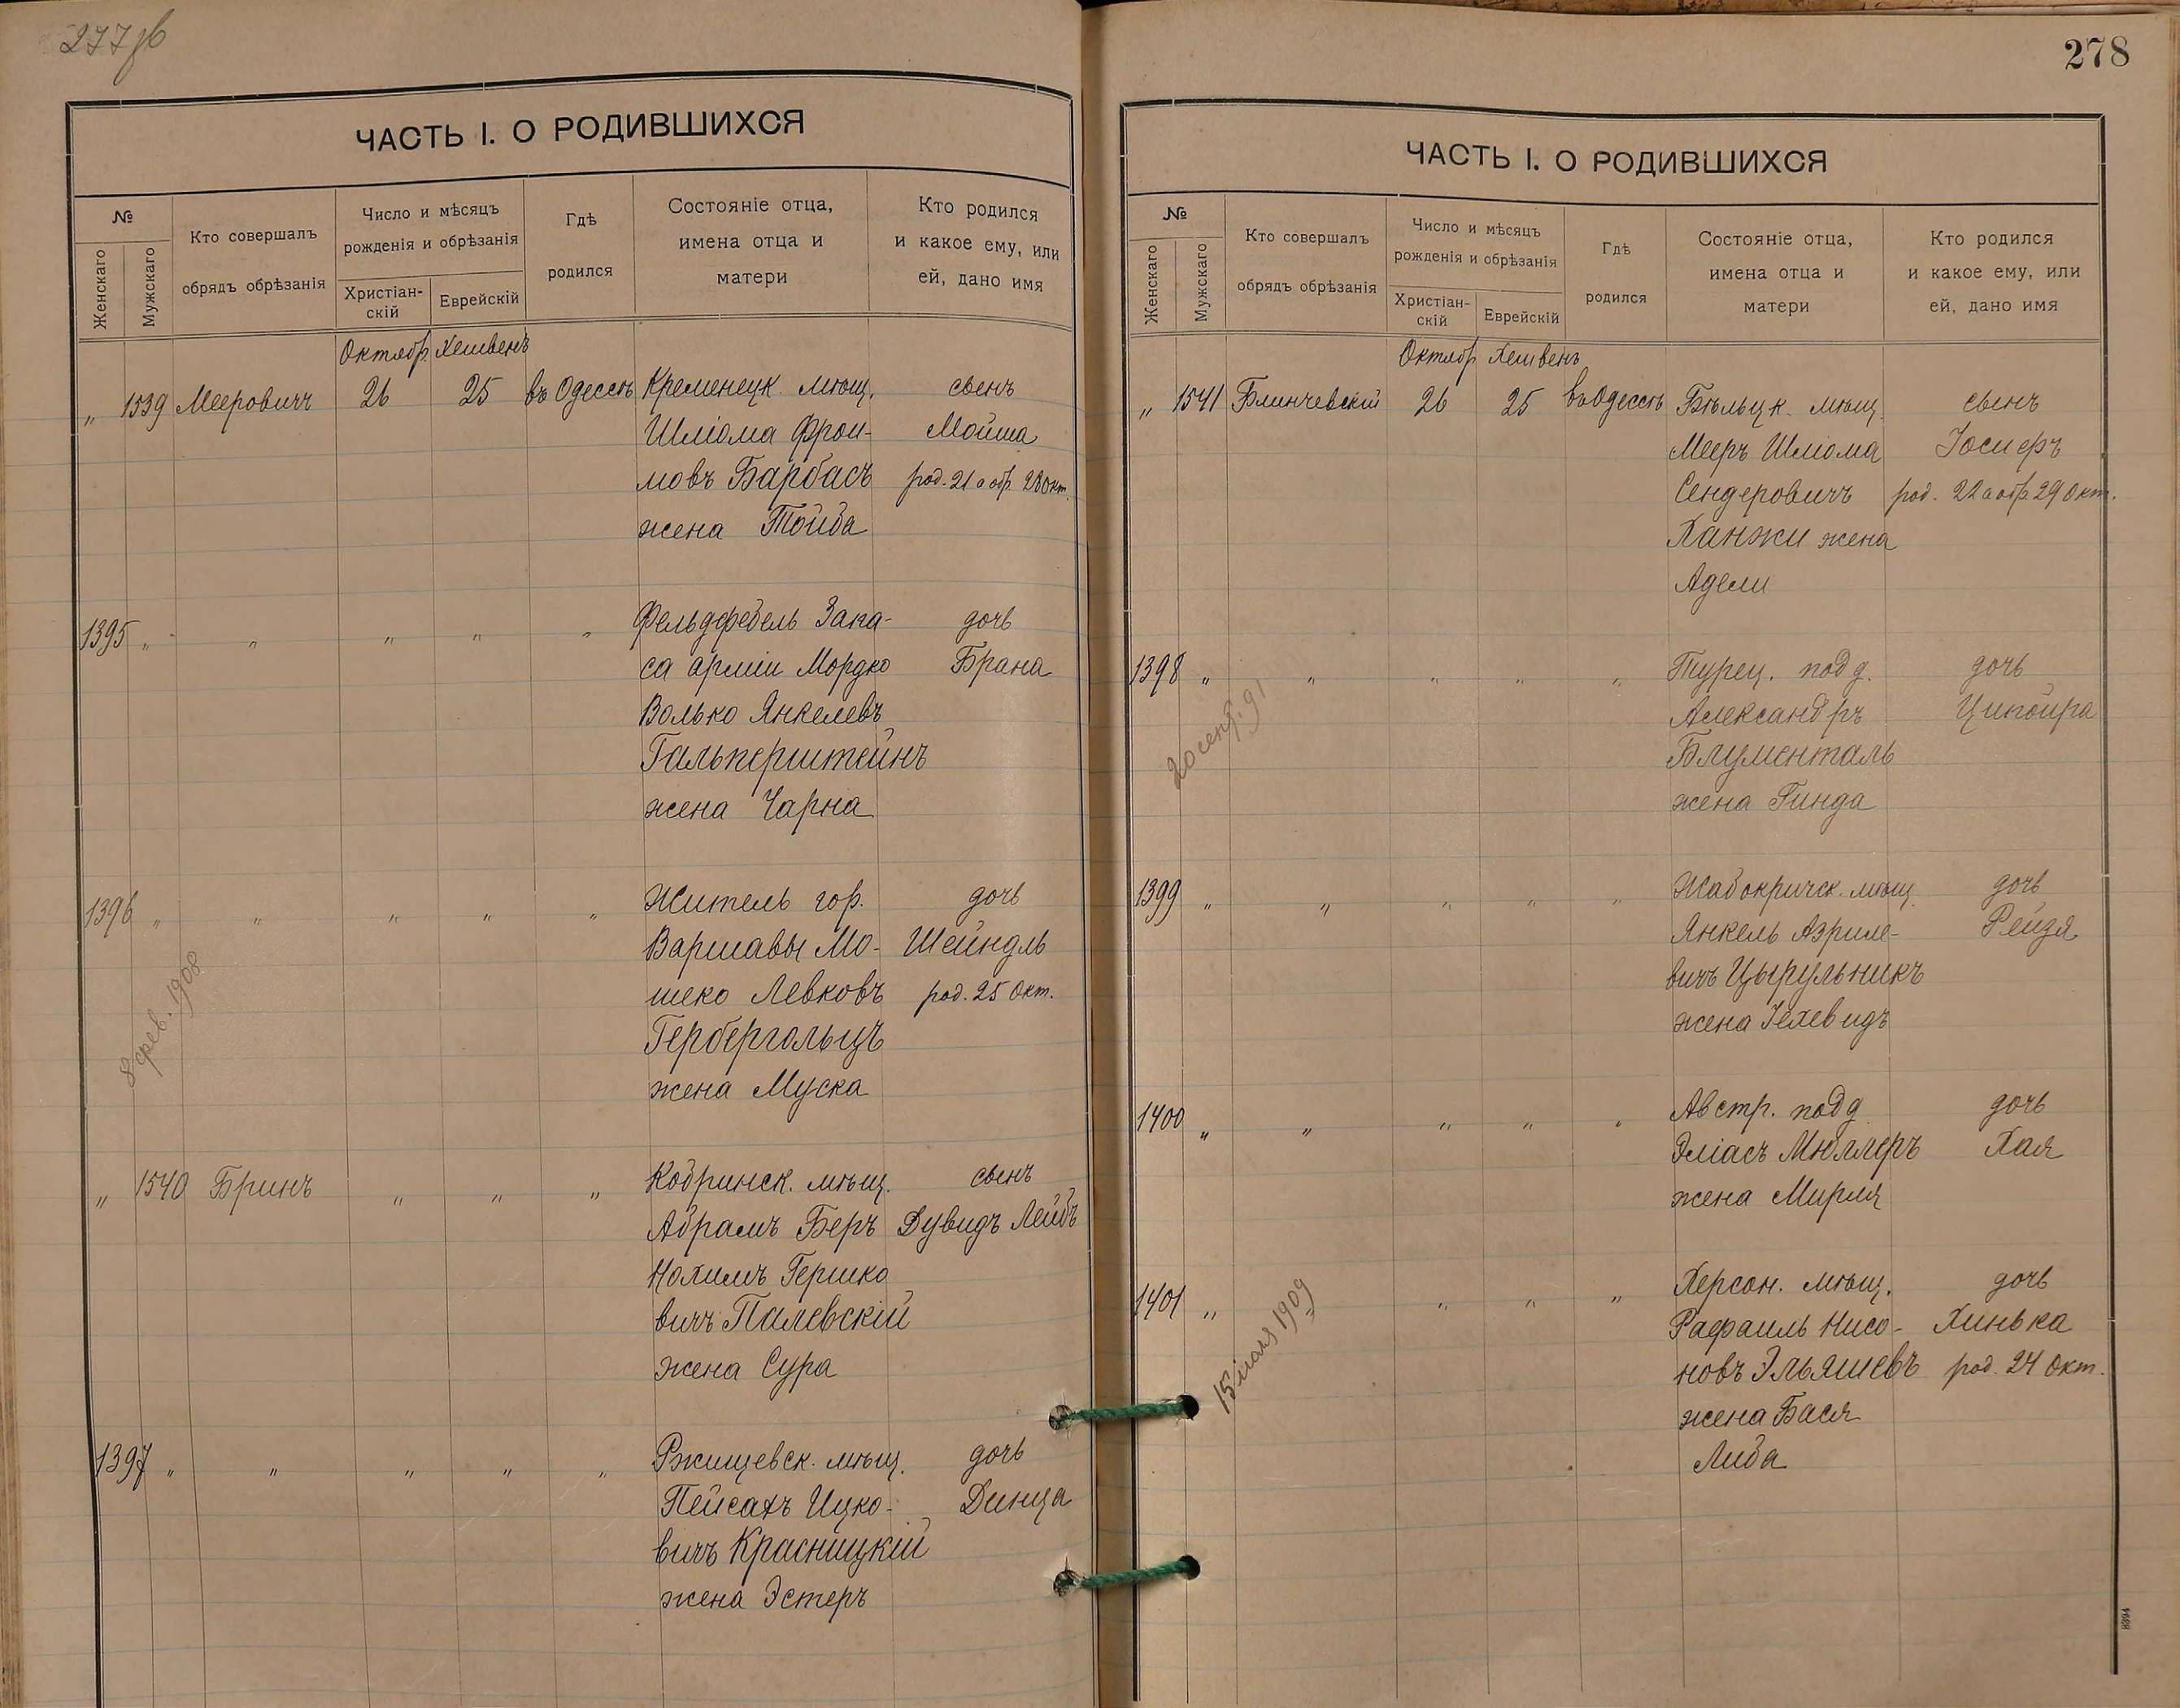 277
ЧАСТЬ I. О РОДИВШИХСЯ
№
Женскаго
Мужскаго
Кто совершалъ
обрядъ обрѣзанія
Число и мѣсяцъ
рожденія и обрѣзанія
Христіан-
скій
Еврейскій
Гдѣ
родился
Состояніе отца,
имена отца и
матери
Кто родился
и какое ему, или
ей, дано имя
Октябр. Хешвенъ
„ 1539 Мееровичъ 26 25 въ Одессѣ Кременецк. мѣщ. сынъ
Шліома Фрои- Мойша
мовъ Барбасъ род. 21 а обр. 28 окт.
жена Тойба
1395 „ „ „ „ „ Фельдфебель Запа- дочь
са арміи Мордко Брана
Волько Янкелевъ
Гальперштейнъ
жена Чарна
1396 „ „ „ „ „ Житель гор. дочь
Варшавы Мо- Шейндль
шеко Левковъ род. 25 Окт.
Гербергольцъ
жена Муска
8 фев. 1908
„ 1540 Бринъ „ „ „ Кобринск. мѣщ. сынъ
Абрамъ Беръ Дувидъ Лейбъ
Нохимъ Гершко
вичъ Палевскій
жена Сура
1397 „ „ „ „ „ Ржищевск. мѣщ. дочь
Пейсахъ Ицко- Динца
вичъ Красницкій
жена Эстеръ
278
ЧАСТЬ I. О РОДИВШИХСЯ
№
Женскаго
Мужскаго
Кто совершалъ
обрядъ обрѣзанія
Число и мѣсяцъ
рожденія и обрѣзанія
Христіан-
скій
Еврейскій
Гдѣ
родился
Состояніе отца,
имена отца и
матери
Кто родился
и какое ему, или
ей, дано имя
Октябр. Хешвенъ
„ 1541 Блинчевскій 26 25 въ Одессѣ Бѣльцк. мѣщ. сынъ
Мееръ Шліома Іосифъ
Сендеровичъ род. 22 а обр. 29 окт.
Ханжи жена
Адели
1398 „ „ „ „ „ Турец. подд. дочь
Александръ Ципойра
Блументаль
жена Гинда
20 сент. 91
1399 „ „ „ „ „ Жабокричск. мѣщ. дочь
Янкель Азриле- Рейзя
вичъ Цырульникъ
жена Іехевидъ
1400 „ „ „ „ „ Австр. подд дочь
Эліасъ Мюллеръ Хая
жена Мирля
1401 „ „ „ „ Херсон. мѣщ. дочь
Рафаиль Нисо- Хинька
новъ Эльяшевъ род. 24 Окт.
жена Бася
Либа
1909
8394